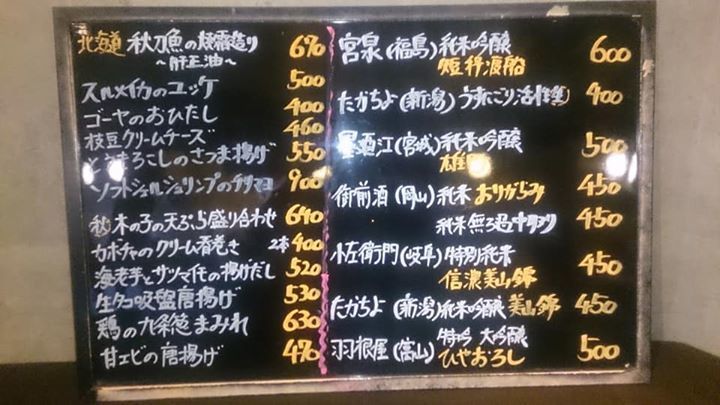 北海道 秋刀魚の焼霜造り 670
～肝正油～
スルメイカのユッケ 500
ゴーヤのおひたし 400
枝豆クリームチーズ 460
とうもろこしのさつま揚げ 550
ソフトシェルシュリンプのチリマヨ 900
秋木の子の天ぷら盛り合わせ 640
カボチャのクリーム春巻き 2本 400
海老芋とサツマイモの揚げだし 520
生タコ吸盤唐揚げ 530
鶏の九条葱まみれ 630
甘エビの唐揚げ 470
宮泉(福島)純米吟醸 600
短稈渡船
たかちよ(新潟)うすにごり活性生 400
墨廼江(宮城)純米吟醸 500
雄町
御前酒(岡山)純米 おりがらみ 450
純米無ろ過 中タンク 450
小左衛門(岐阜)特別純米 450
信濃美山錦
たかちよ(新潟)純米吟醸 美山錦 450
羽根屋(富山)特吟 大吟醸 500
ひやおろし